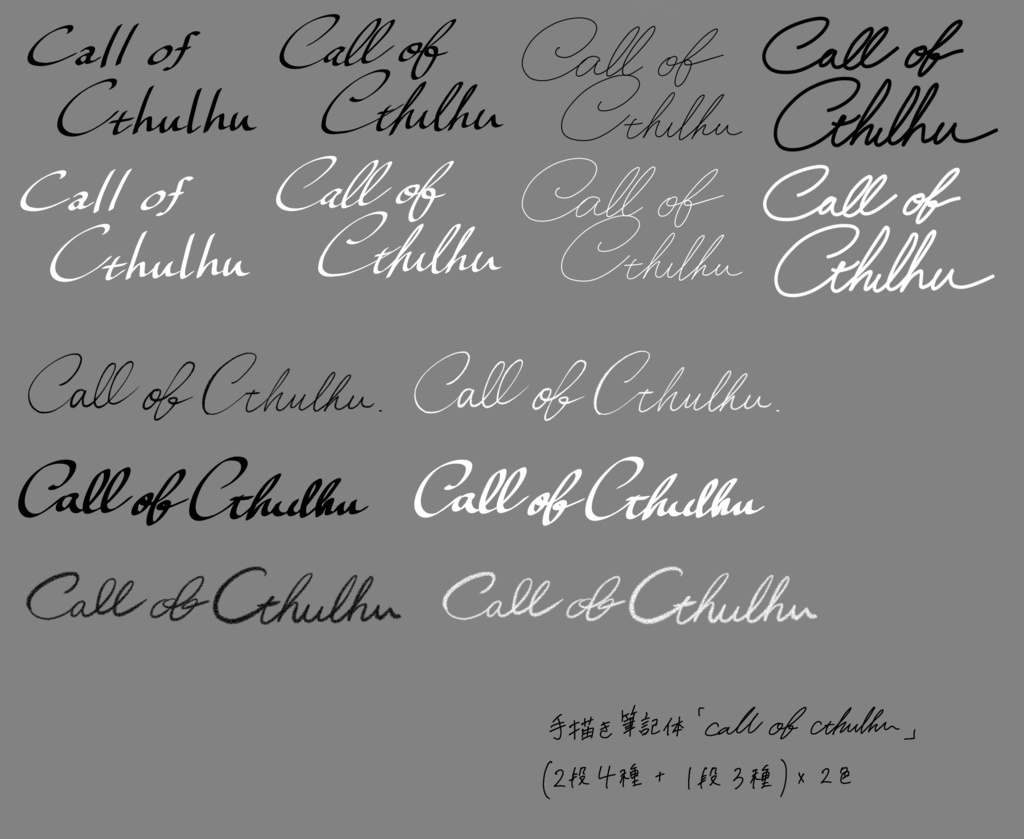 Call of Call of Call of Call of
Cthulhu Cthulhu Cthulhu Cthulhu
Call of Call of Call of Call of
Cthulhu Cthulhu Cthulhu Cthulhu
Call of Cthulhu. Call of Cthulhu.
Call of Cthulhu Call of Cthulhu
Call of Cthulhu Call of Cthulhu
手描き筆記体「call of cthulhu」
(2段4種 + 1段3種) x 2色